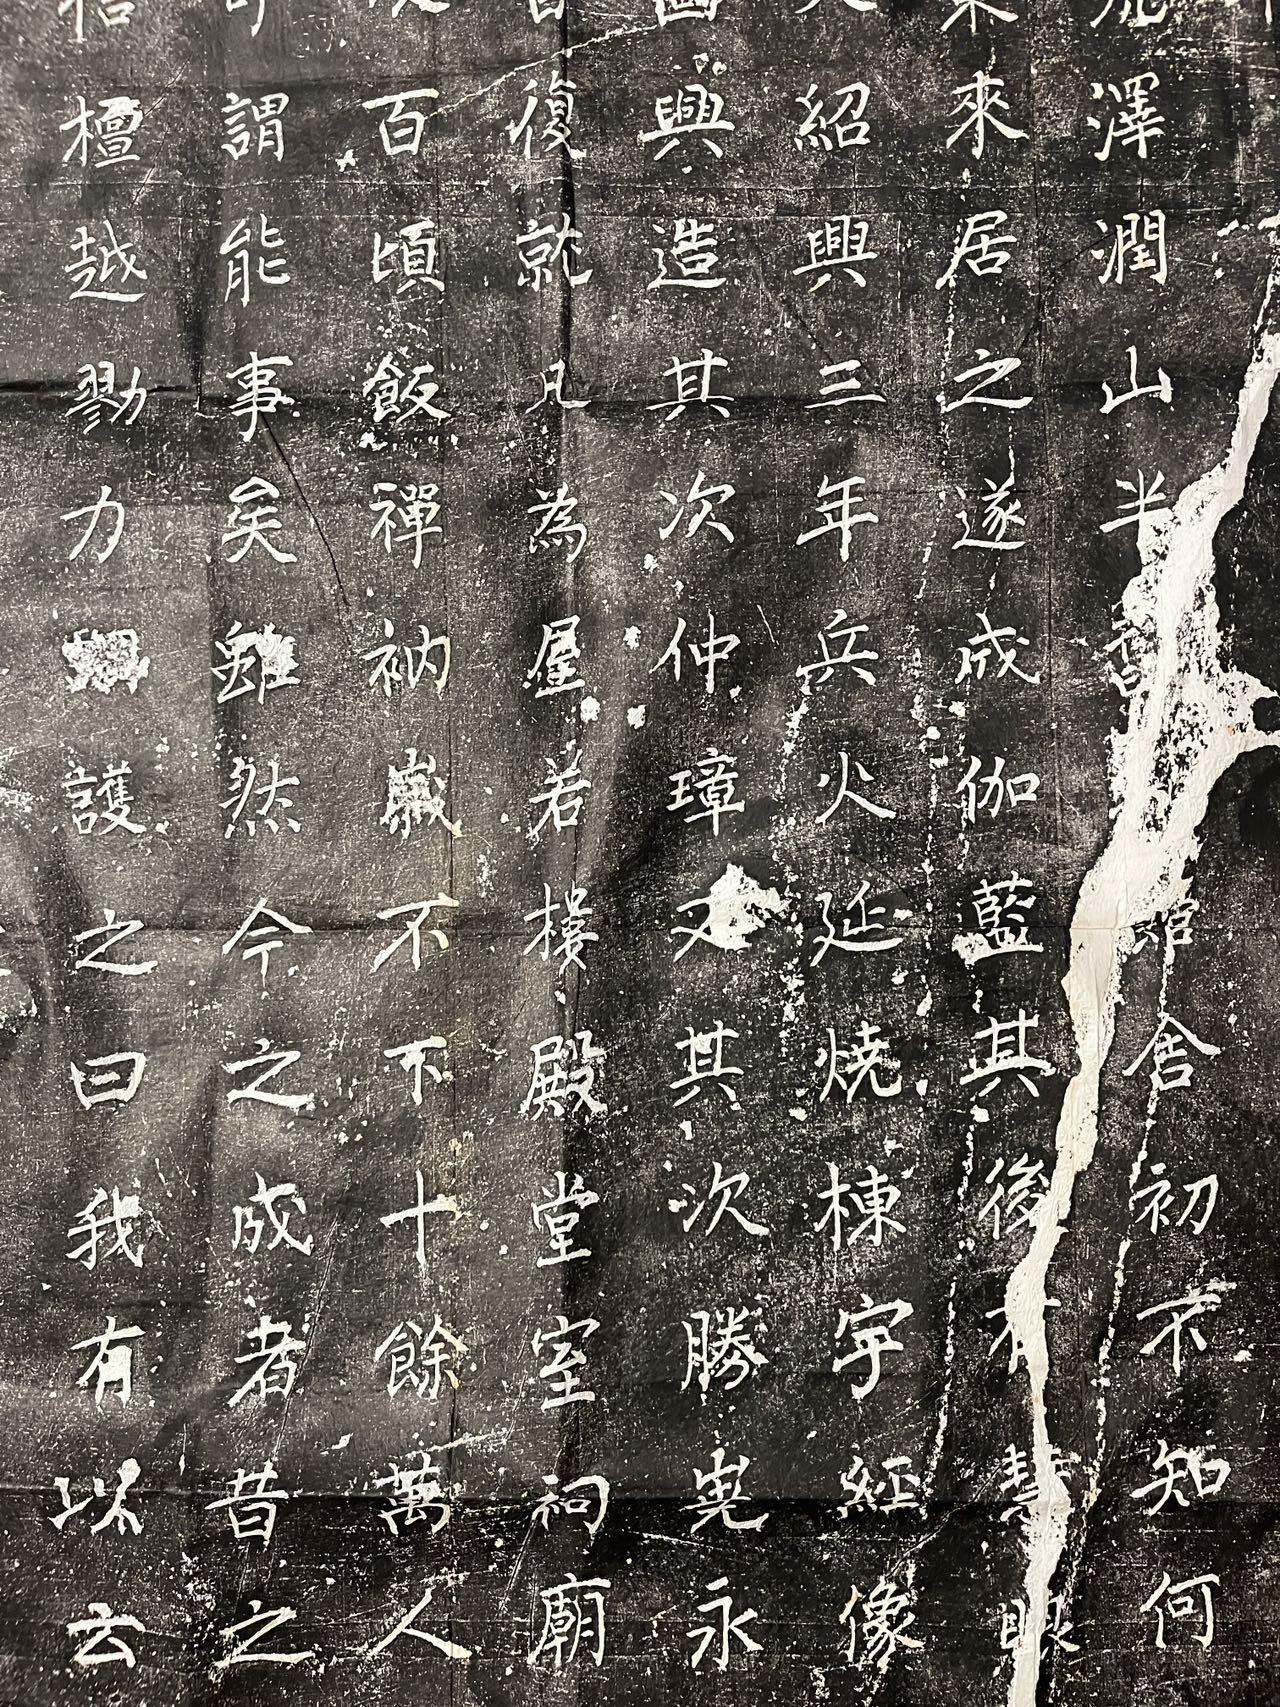 澤潤山半舊館舍初不知何
來居之遂成伽藍其後有慧眼
紹興三年兵火延燒棟宇經像
興造其次仲璋又其次勝嵬永
復就凡為屋若樓殿堂室祠廟
百頃飯禪衲歲不下十餘萬人
謂能事矣雖然今之成者昔之
檀越勠力護之曰我有以玄